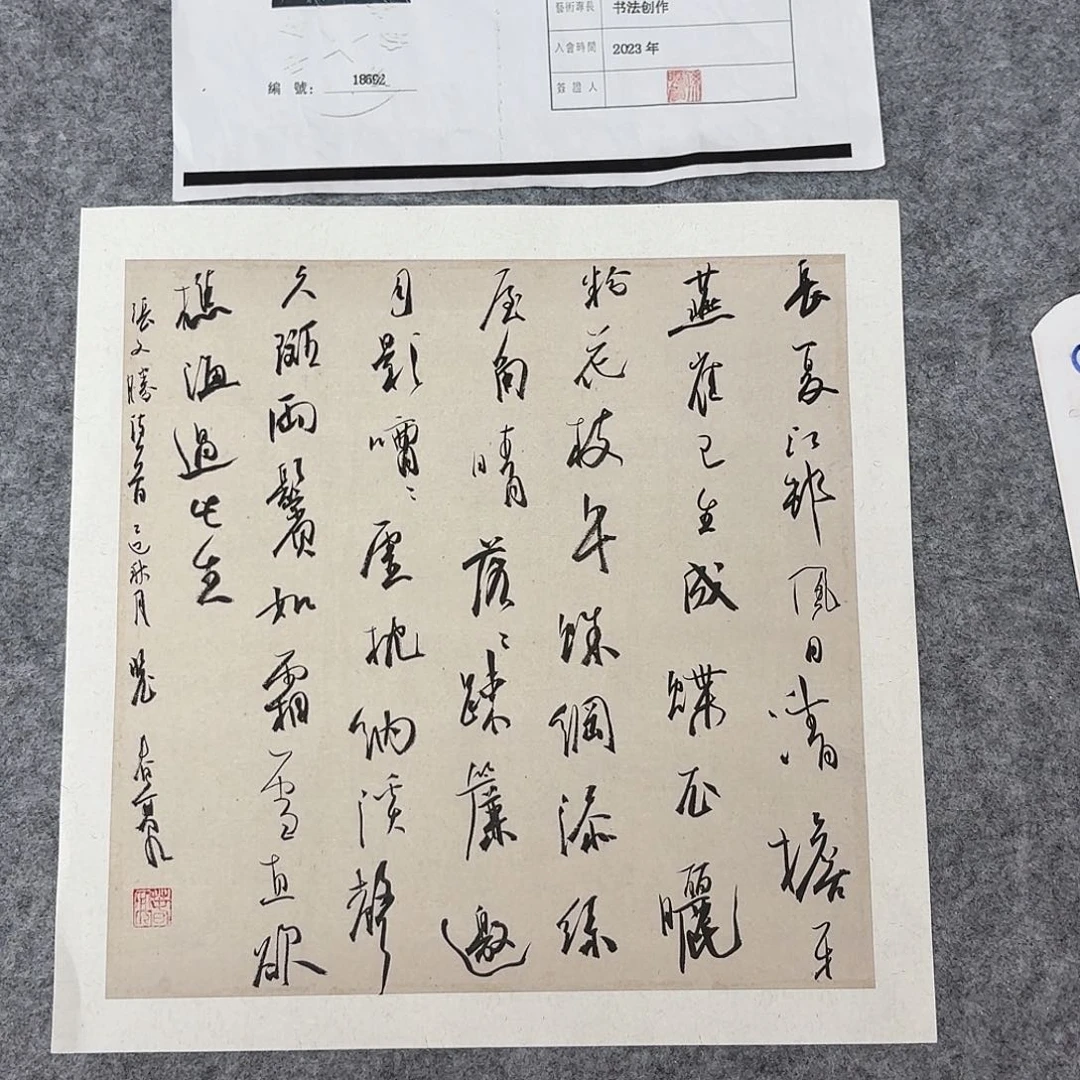 藝術專長 书法创作
入會時間 2023 年
簽證人
編 號: 18692
長夏江邨風日清檐牙
燕雀已生成蝶衣曬
粉花枝午蛛網添絲
屋角晴落〻疎簾邀
月影嘈〻虛枕納溪聲
久斑兩鬢如霜雪直欲
樵漁過此生
張文潛詩首 乙巳秋月